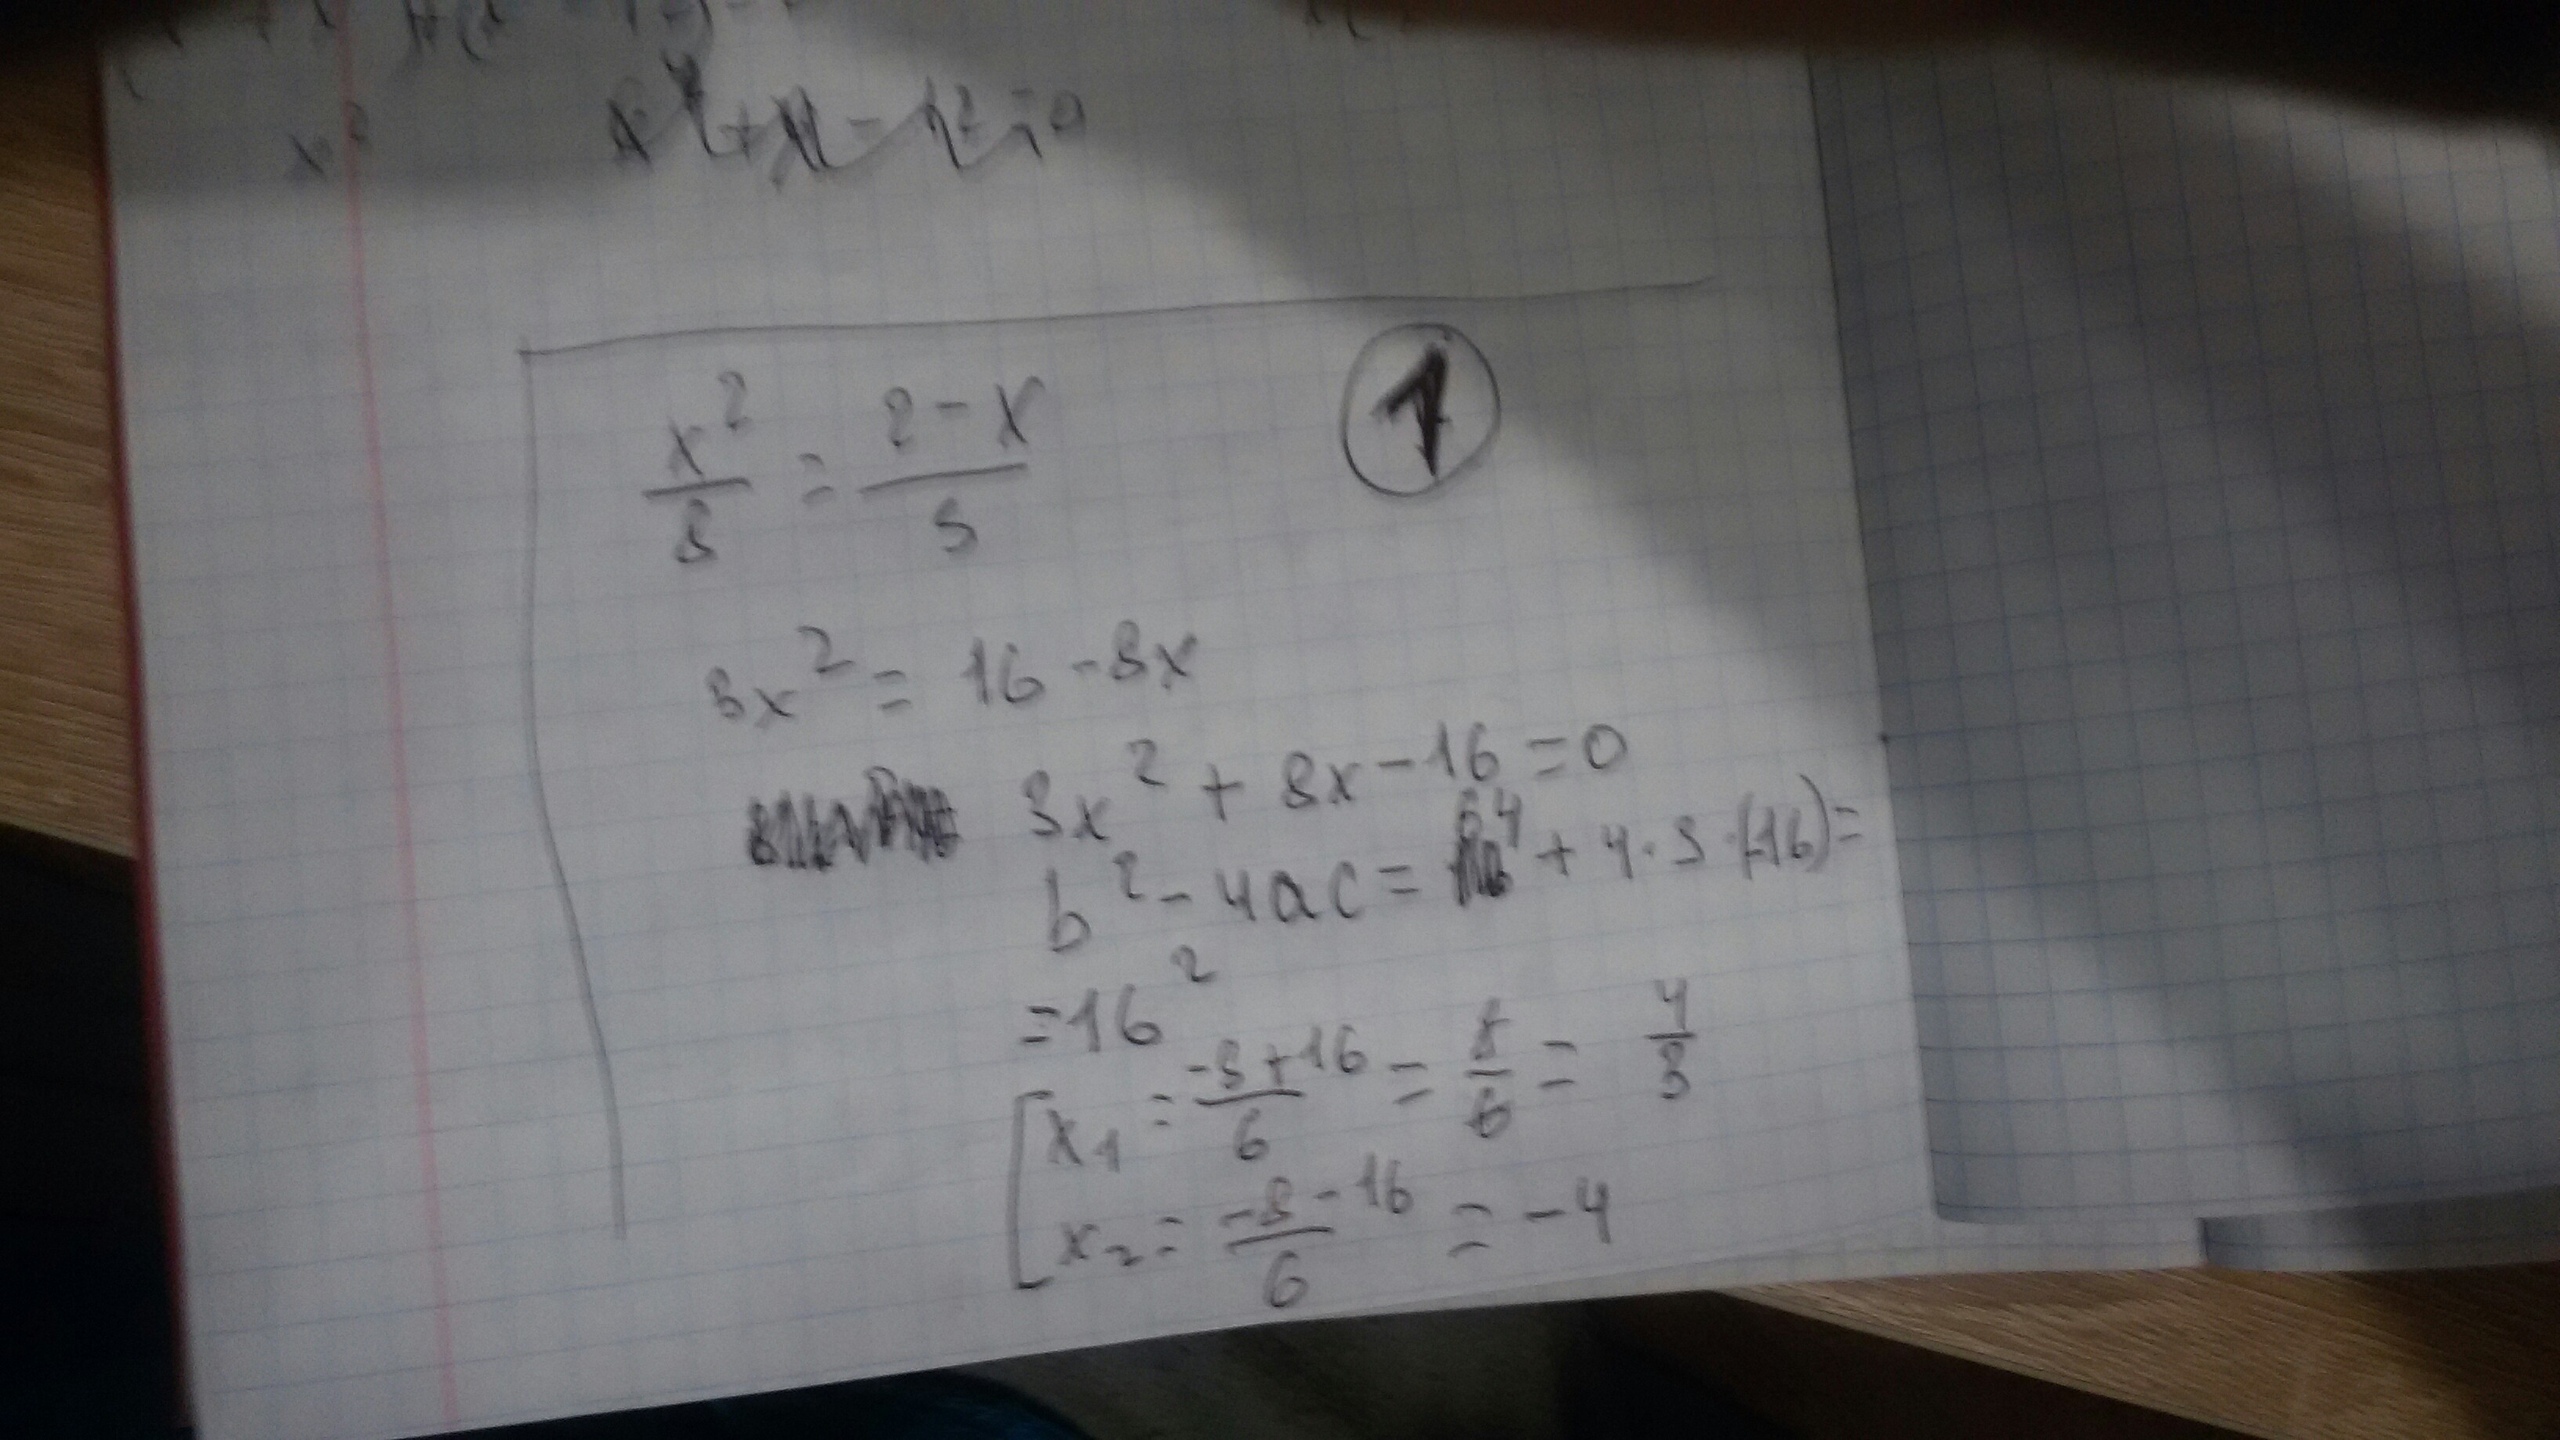 x² + x - 12 = 0
①
x²/8 = 2-x/3
3x² = 16 - 8x
3x² + 8x - 16 = 0
b² - 4ac = 64 + 4·3·(-16) =
= 16²
x₁ = -8+16/6 = 8/6 = 4/3
x₂ = -8-16/6 = -4